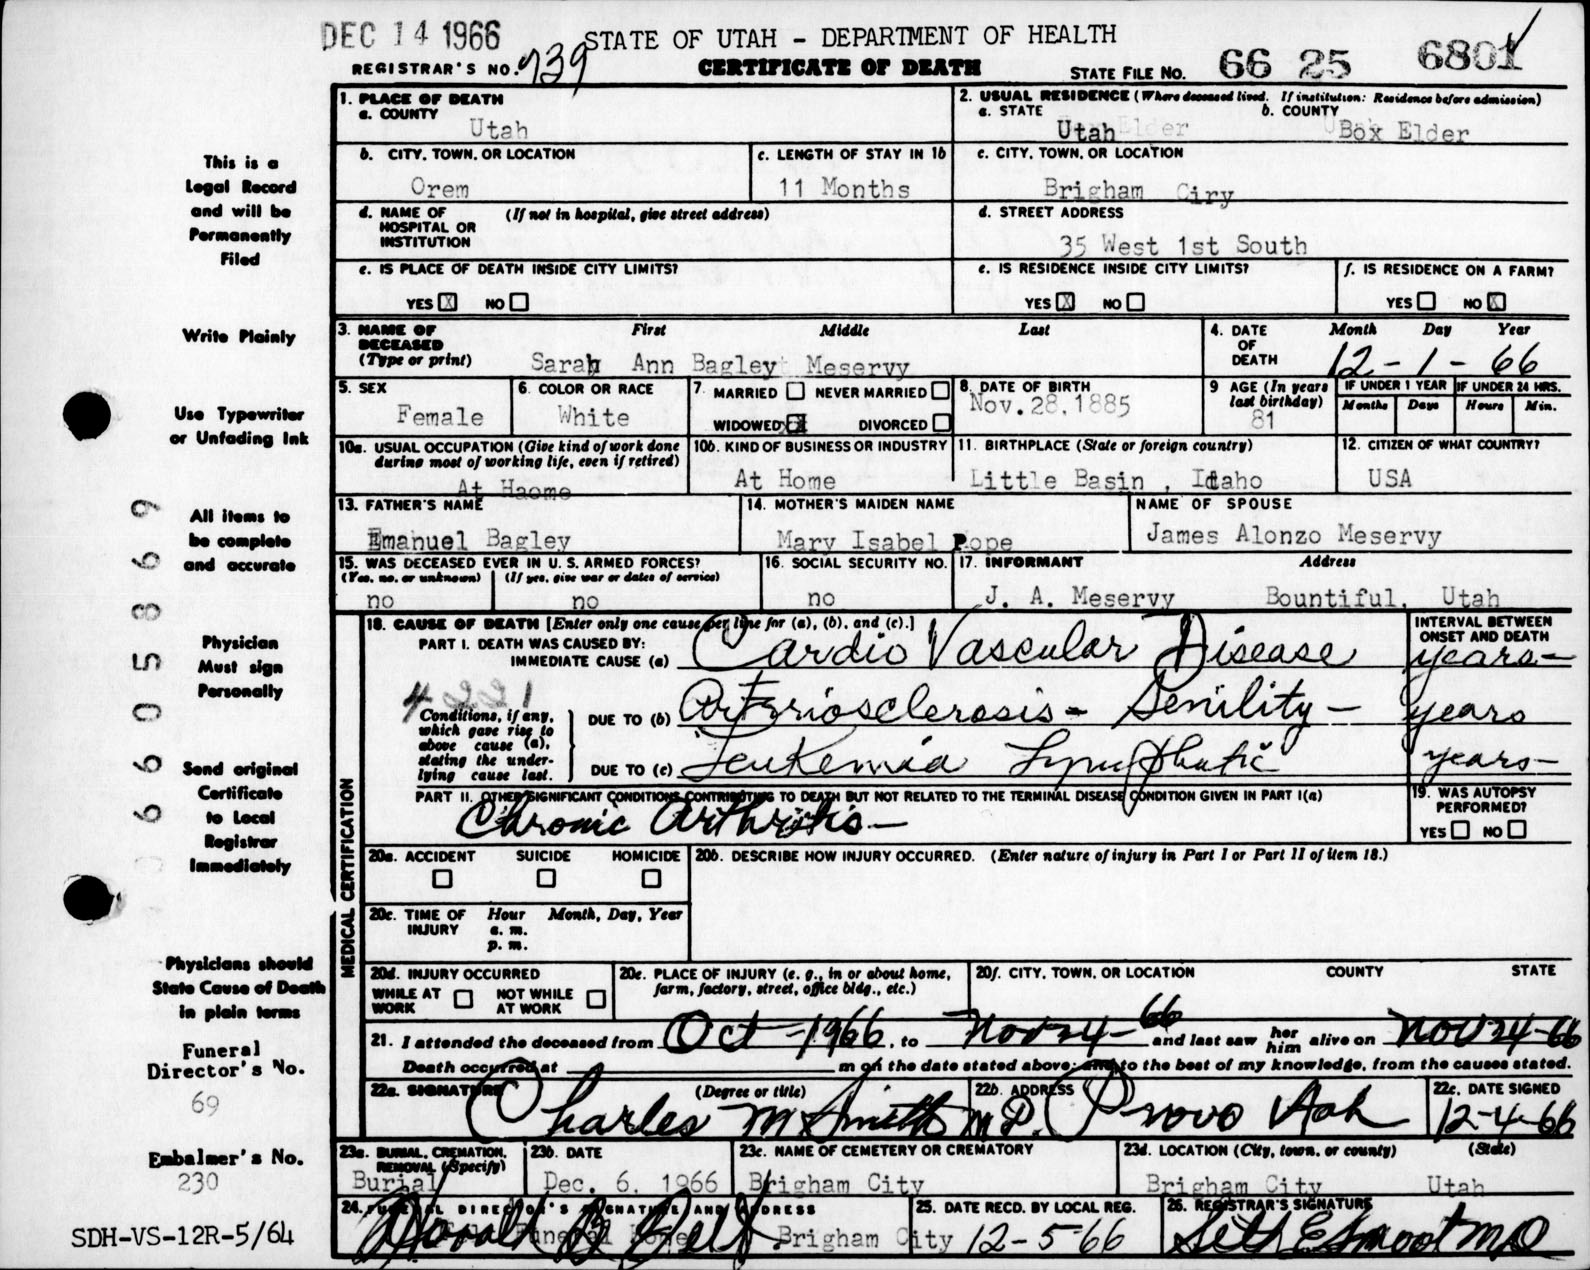 DEC 14 1966
STATE OF UTAH - DEPARTMENT OF HEALTH
REGISTRAR'S NO. 739
CERTIFICATE OF DEATH
STATE FILE NO. 66 25 6801
This is a
Legal Record
and will be
Permanently
Filed
Write Plainly
Use Typewriter
or Unfading Ink
All items to
be complete
and accurate
Physician
Must sign
Personally
Send original
Certificate
to Local
Registrar
Immediately
Physicians should
State Cause of Death
in plain terms
Funeral
Director's No.
69
Embalmer's No.
230
SDH-VS-12R-5/64
6605869
1. PLACE OF DEATH
a. COUNTY
Utah
2. USUAL RESIDENCE (Where deceased lived. If institution: Residence before admission)
a. STATE b. COUNTY
Utah Box Elder
b. CITY, TOWN, OR LOCATION
Orem
c. LENGTH OF STAY IN 1b
11 Months
c. CITY, TOWN, OR LOCATION
Brigham Ciry
d. NAME OF (If not in hospital, give street address)
HOSPITAL OR
INSTITUTION
d. STREET ADDRESS
35 West 1st South
e. IS PLACE OF DEATH INSIDE CITY LIMITS?
YES X NO
e. IS RESIDENCE INSIDE CITY LIMITS?
YES X NO
f. IS RESIDENCE ON A FARM?
YES NO X
3. NAME OF First Middle Last
DECEASED
(Type or print) Sarah Ann Bagley Meservy
4. DATE Month Day Year
OF
DEATH 12-1-66
5. SEX
Female
6. COLOR OR RACE
White
7. MARRIED NEVER MARRIED
WIDOWED X DIVORCED
8. DATE OF BIRTH
Nov.28,1885
9 AGE (In years
last birthday)
81
IF UNDER 1 YEAR IF UNDER 24 HRS.
Months Days Hours Min.
10a. USUAL OCCUPATION (Give kind of work done
during most of working life, even if retired)
At Haome
10b. KIND OF BUSINESS OR INDUSTRY
At Home
11. BIRTHPLACE (State or foreign country)
Little Basin , Idaho
12. CITIZEN OF WHAT COUNTRY?
USA
13. FATHER'S NAME
Emanuel Bagley
14. MOTHER'S MAIDEN NAME
Mary Isabel Pope
NAME OF SPOUSE
James Alonzo Meservy
15. WAS DECEASED EVER IN U. S. ARMED FORCES?
(Yes, no, or unknown) (If yes, give war or dates of service)
no no
16. SOCIAL SECURITY NO.
no
17. INFORMANT Address
J. A. Meservy Bountiful, Utah
MEDICAL CERTIFICATION
18. CAUSE OF DEATH [Enter only one cause per line for (a), (b), and (c).]
INTERVAL BETWEEN
ONSET AND DEATH
PART I. DEATH WAS CAUSED BY:
IMMEDIATE CAUSE (a) Cardio Vascular Disease years-
4221
Conditions, if any,
which gave rise to
above cause (a),
stating the under-
lying cause last.
DUE TO (b) Arteriosclerosis- Senility- years
DUE TO (c) Leukemia Lymphatic years-
PART II. OTHER SIGNIFICANT CONDITIONS CONTRIBUTING TO DEATH BUT NOT RELATED TO THE TERMINAL DISEASE CONDITION GIVEN IN PART I(a)
Chronic Arthritis-
19. WAS AUTOPSY
PERFORMED?
YES NO
20a. ACCIDENT SUICIDE HOMICIDE
20b. DESCRIBE HOW INJURY OCCURRED. (Enter nature of injury in Part I or Part II of item 18.)
20c. TIME OF Hour Month, Day, Year
INJURY a. m.
p. m.
20d. INJURY OCCURRED
WHILE AT NOT WHILE
WORK AT WORK
20e. PLACE OF INJURY (e. g., in or about home,
farm, factory, street, office bldg., etc.)
20f. CITY, TOWN, OR LOCATION COUNTY STATE
21. I attended the deceased from Oct-1966, to Nov 24-66 and last saw her him alive on Nov 24-66
Death occurred at m on the date stated above; and to the best of my knowledge, from the causes stated.
22a. SIGNATURE (Degree or title)
Charles M Smith M.D.
22b. ADDRESS
Provo Utah
22c. DATE SIGNED
12-4-66
23a. BURIAL, CREMATION,
REMOVAL (Specify)
Burial
23b. DATE
Dec. 6, 1966
23c. NAME OF CEMETERY OR CREMATORY
Brigham City
23d. LOCATION (City, town, or county) (State)
Brigham City Utah
24. FUNERAL DIRECTOR'S SIGNATURE AND ADDRESS
Funeral Home Brigham City
25. DATE RECD. BY LOCAL REG.
12-5-66
26. REGISTRAR'S SIGNATURE
Seth E Smoot MD